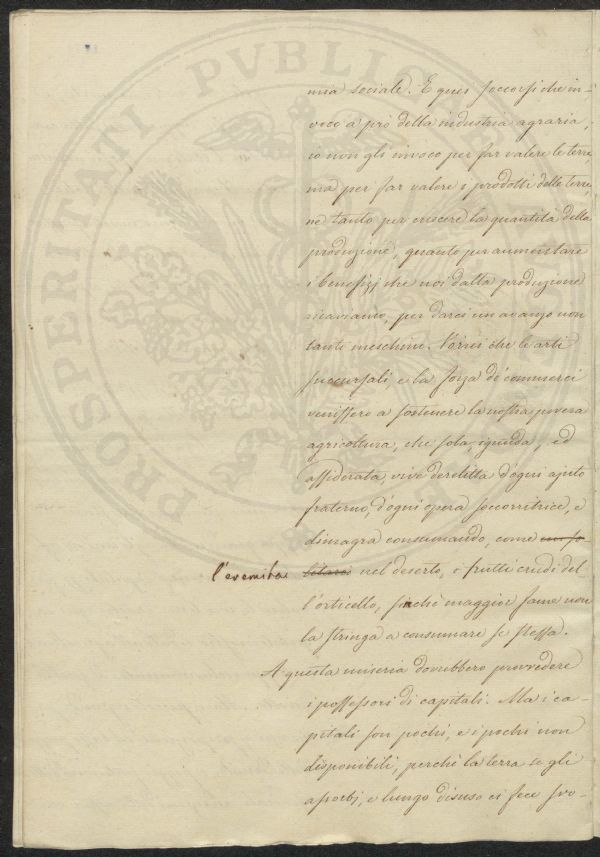 mia sociale. E quei soccorsi che in-
voco a prò della industria agraria,
io non gli invoco per far valere le terre
ma per far valere i prodotti delle terre,
nè tanto per crescere la quantità della
produzione, quanto per aumentare
i benefizj che noi dalla produzione
caviamo, per darci un avanzo non
tanto meschino. Vorrei che le arti
succursali, e la forza de' commerci
venissero a sostenere la nostra povera
agricoltura, che sola, ignuda, ed
assiderata, vive derelitta d'ogni ajuto
fraterno, d'ogni opera soccorritrice, e
dimagra consumando, come un so-
l'eremita litario nel deserto, i frutti crudi del
l'orticello, finchè maggior fame non
la stringa a consumare se stessa.
A questa miseria dovrebbero provvedere
i possessori di capitali. Ma i ca-
pitali son pochi, e i pochi non
disponibili, perchè la terra se gli
assorbì, e lungo disuso ci fece sro-
PROSPERITATI PVBLICAE